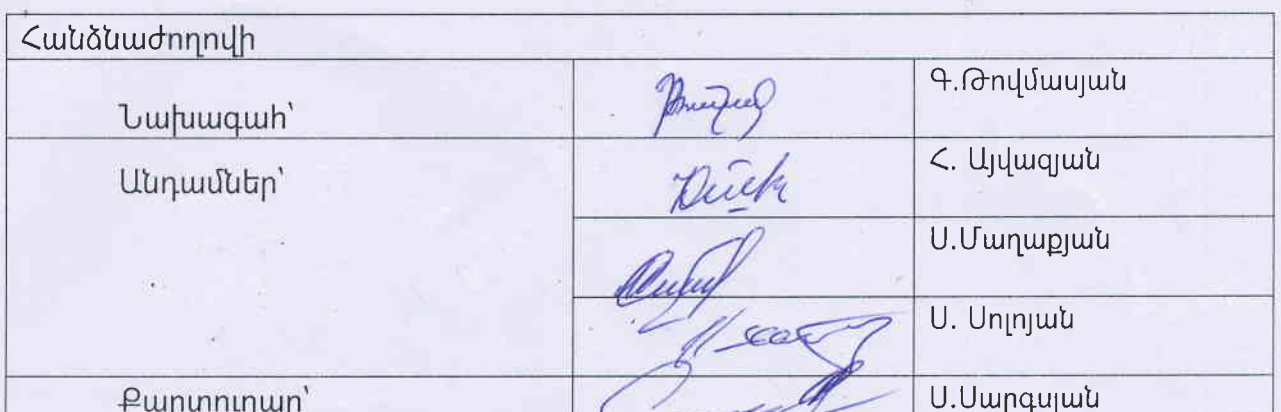 Հանձնաժողովի
Նախագահ՝ Գ.Թովմասյան
Անդամներ՝ Հ. Այվազյան
Ս.Մաղաքյան
Ս. Սոլոյան
Քարտուղար՝ Ս.Սարգսյան